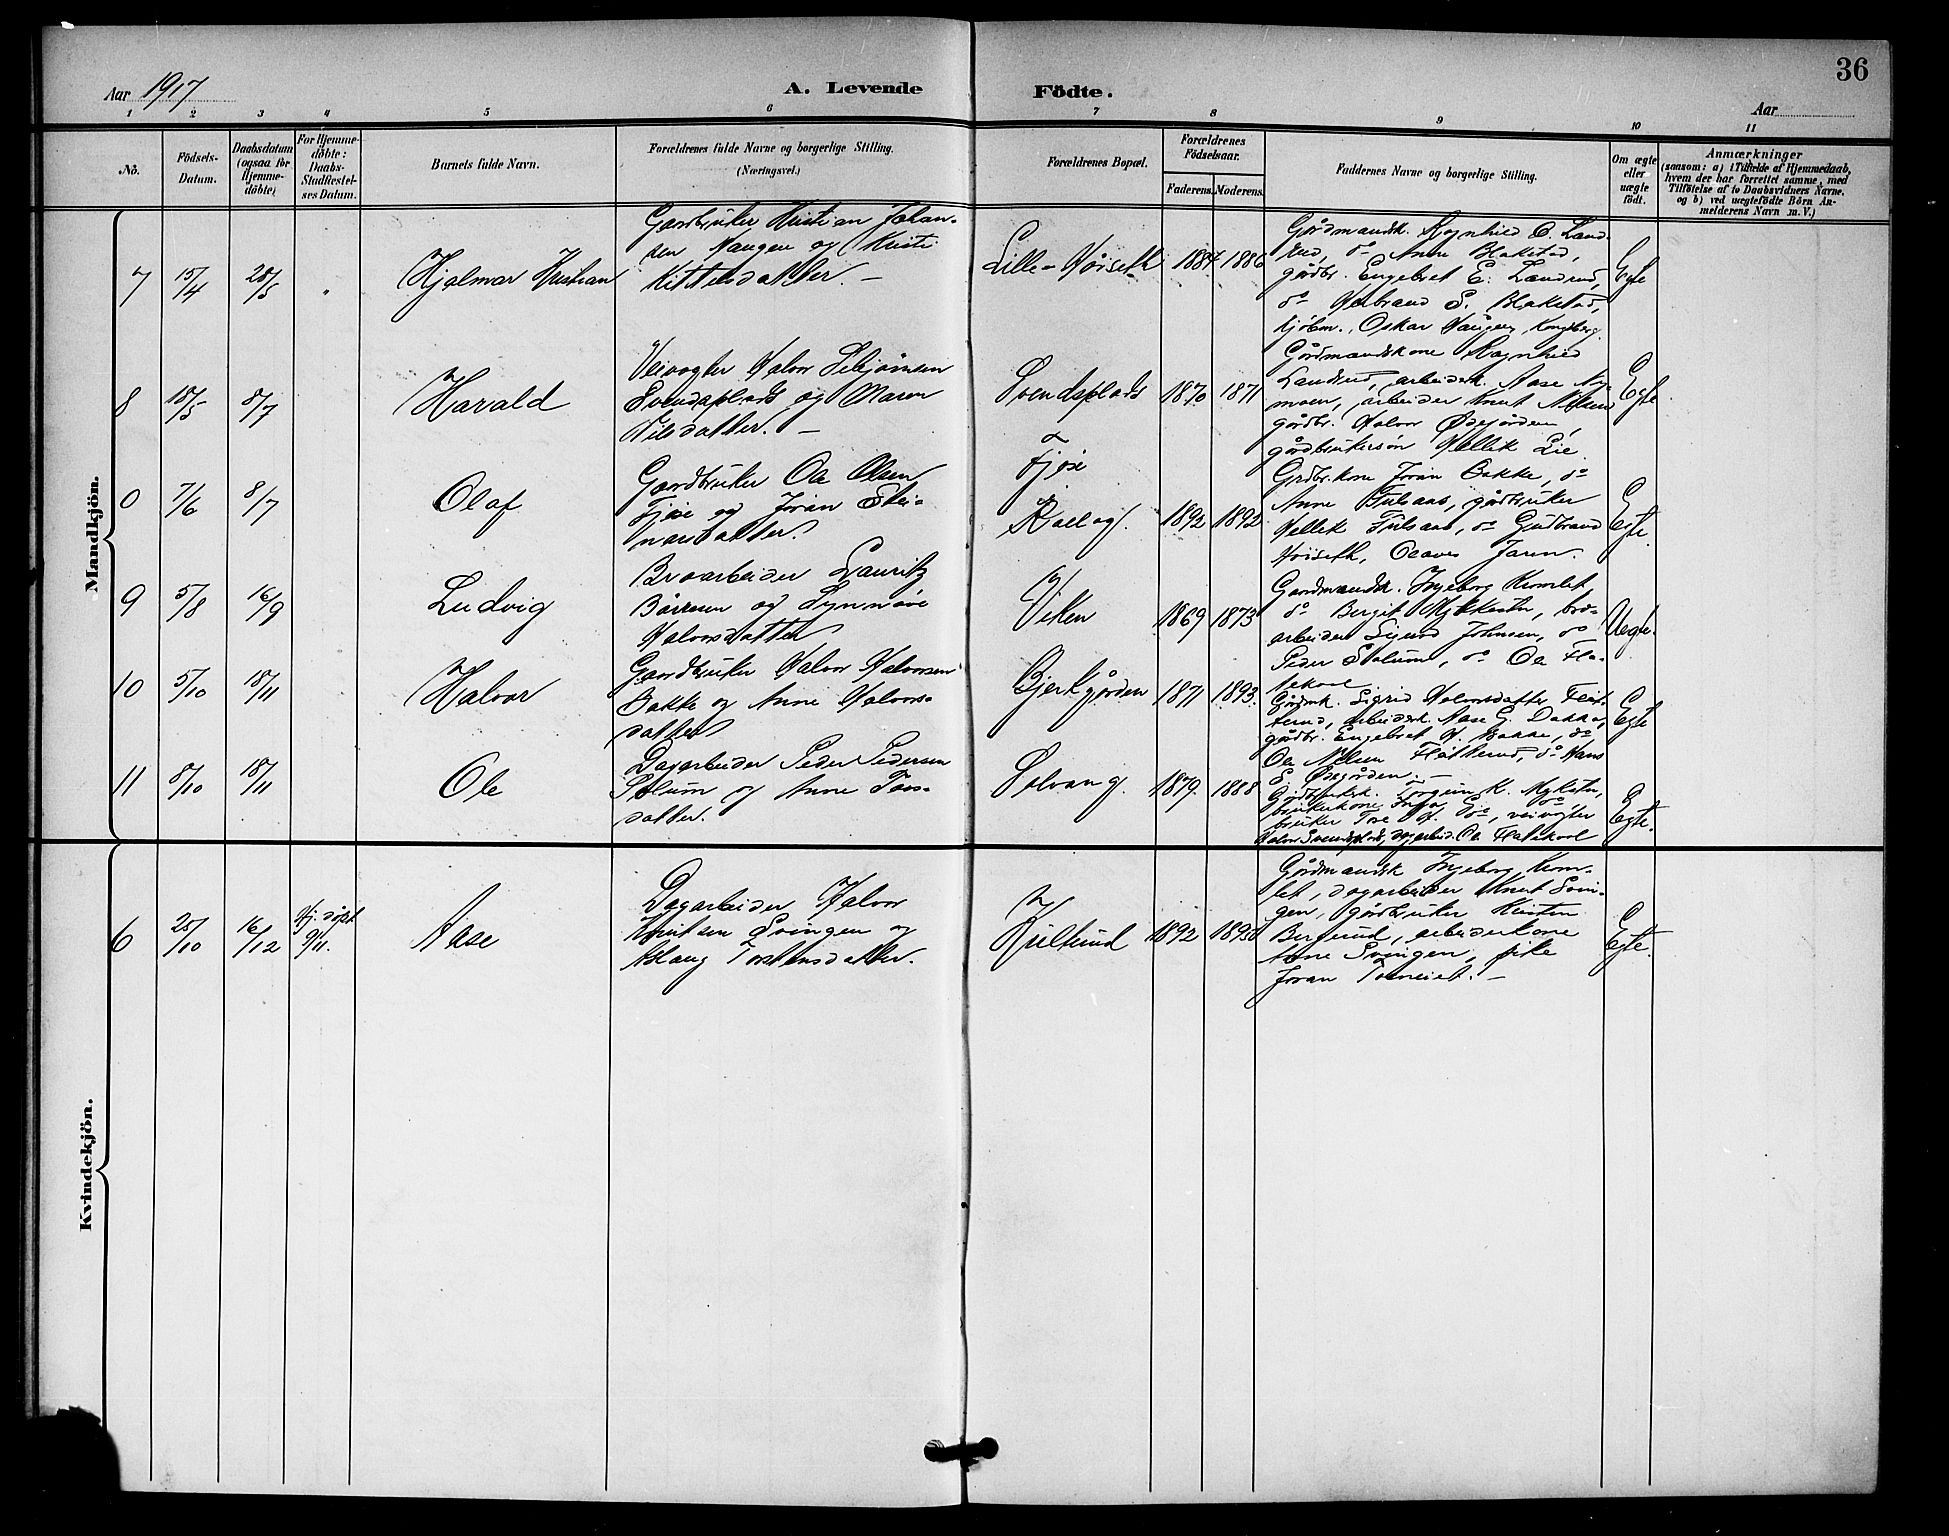 36
Aar 1917
A. Levende Födte.
Aar
1 2 3 4 5 6 7 8 9 10 11
No.
Födsels-
Datum.
Daabsdatum
(ogsaa for
Hjemme-
döbte)
For Hjemme-
döbte:
Daabs-
Stadfæstel-
ses Datum.
Barnets fulde Navn.
Forældrenes fulde Navne og borgerlige Stilling.
(Næringsvei.)
Forældrenes Bopæl.
Forældrenes
Födselsaar.
Faderens. Moderens.
Faddernes Navne og borgerlige Stilling.
Om ægte
eller
uægte
födt.
Anmærkninger
(saasom: a) i Tilfælde af Hjemmedaab,
hvem der har forrettet samme, med
Tilföielse af to Daabsvidners Navne,
og b) ved uægtefödte Börn An-
melderens Navn m. V.)
Mandkjön.
7
15/4
28/5
Hjalmar Kristian
Gaardbruker Kristian Johan-
sen Haugen og Kristi
Kittelsdatter. -
Lille-Høiseth
1884 1886
Gårdmandsk. Ragnhild E. Land-
rud, do Anne Blakstad,
gårdbr. Engebret E. Landrud,
do Herbrand S. Blakstad,
kjøbm. Oskar Haugen, Kongsberg.
Egte
8
18/5
8/7
Harald
Veivogter Halvor Sebjørnsen
Svendsplads og Maren
Nilsdatter. -
Svendsplads
1870 1871
Gårdmandskone Ragnhild
Landrud, arbeidersk. Aase Ny-
moen, arbeider Knut Nilsen
gårdbr. Halvor Ødegården,
gårdbrukersøn Hellik Lie.
Egte
0
7/6
8/7
Olaf
Gaardbruker Ole Olsen
Fjøse og Joran Stei-
narsdatter.
Fjøse
1892 1892
Grdbr.kone Joran Bakke, do
Anne Fulsaas, gårdbruker
Hellik Fulsaas, do Gudbrand
Høiseth, Olaves Jaren
Egte.
9
5/8
16/9
Ludvig
Broarbeider Lauritz
Børresen og Synnøve
Halvorsdatter
Viken
1869 1873
Gaardmandsk. Ingeborg Komlet
do Bergit Mykkestu, bro-
arbeider Sigurd Johnsen, do
Peder Solum, do Ole Fla-
Uegte.
10
5/10
18/11
Halvor
Gaardbruker Halvor Halvorsen
Bakke og Anne Halvors-
datter
Bjerkgården
1871 1893.
Gårdmk. Sigrid Halvorsdatter Fløt-
terud, arbeidersk. Aase G. Bakke,
gårdbr. Engebret H. Bakke, do
Ole Nilsen Fløtterud, do Hans
E. Ødegården. -
Egte
11
8/10
18/11
Ole
Dagarbeider Peder Pedersen
Solum og Anne Tors-
datter.
Solvang.
1879. 1888
Gårdbrukersk. Torgun K. Mykstu,
brukerkone Inga do, do
bruker Tore H. do, veivogter
Halvor Svendsplads, dagarbeid. Ole Flatskool
Egte.
Kvindekjön.
6
28/10
16/12
Hj. døpt
9/11.
Aase
Dagarbeider Halvor
Knutsen Svingen og
Aslaug Torstensdatter.
1892
Gårdmandsk Ingeborg Kom-
let, dagarbeider Knut Svin-
gen, gårdbruker Kristen
Bergerud, arbeiderkone
Anne Svingen, pike
Joran Torneiet. -
Egte.